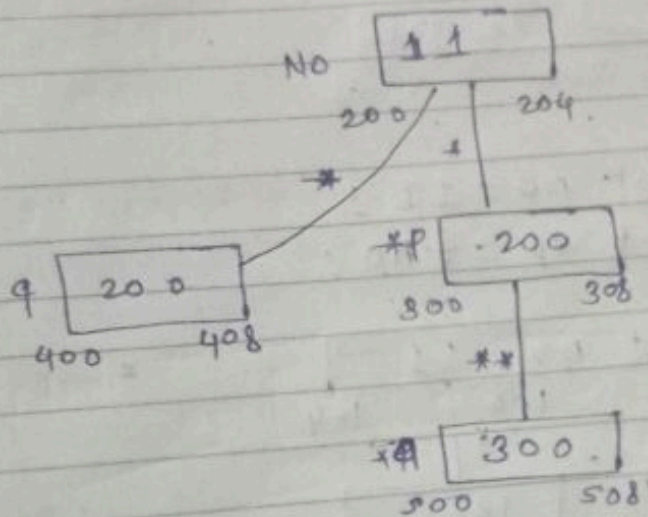 No 11
200 204
*
*
*P 200
300 308
q 200
400 408
**
300
500 508